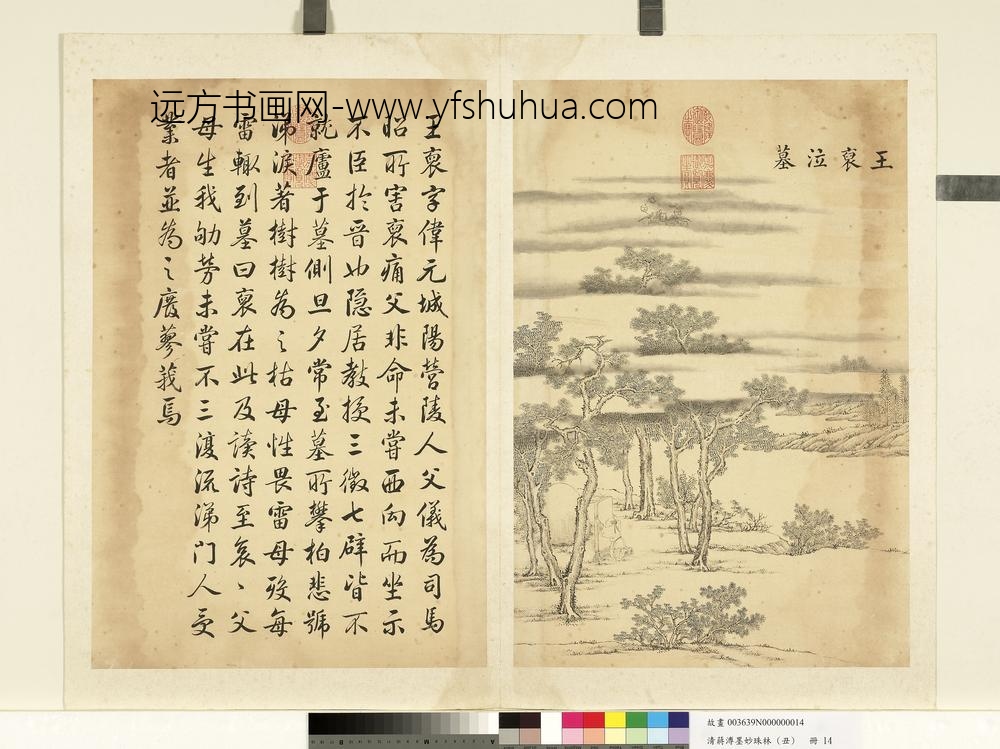 远方书画网-www.yfshuhua.com
王裒泣墓
王裒字偉元城陽營陵人父儀為司馬
昭所害裒痛父非命未嘗西向而坐示
不臣於晋也隐居教授三徵七辟皆不
就廬于墓側旦夕常至墓所攀柏悲號
涕淚著樹樹為之枯母性畏雷母歿每
雷輙到墓曰裒在此及讀詩至哀〻父
母生我劬劳未嘗不三復流涕门人受
業者並為之廢蓼莪焉
故畫 003639N000000014
清蔣溥墨妙珠林（丑） 冊 14